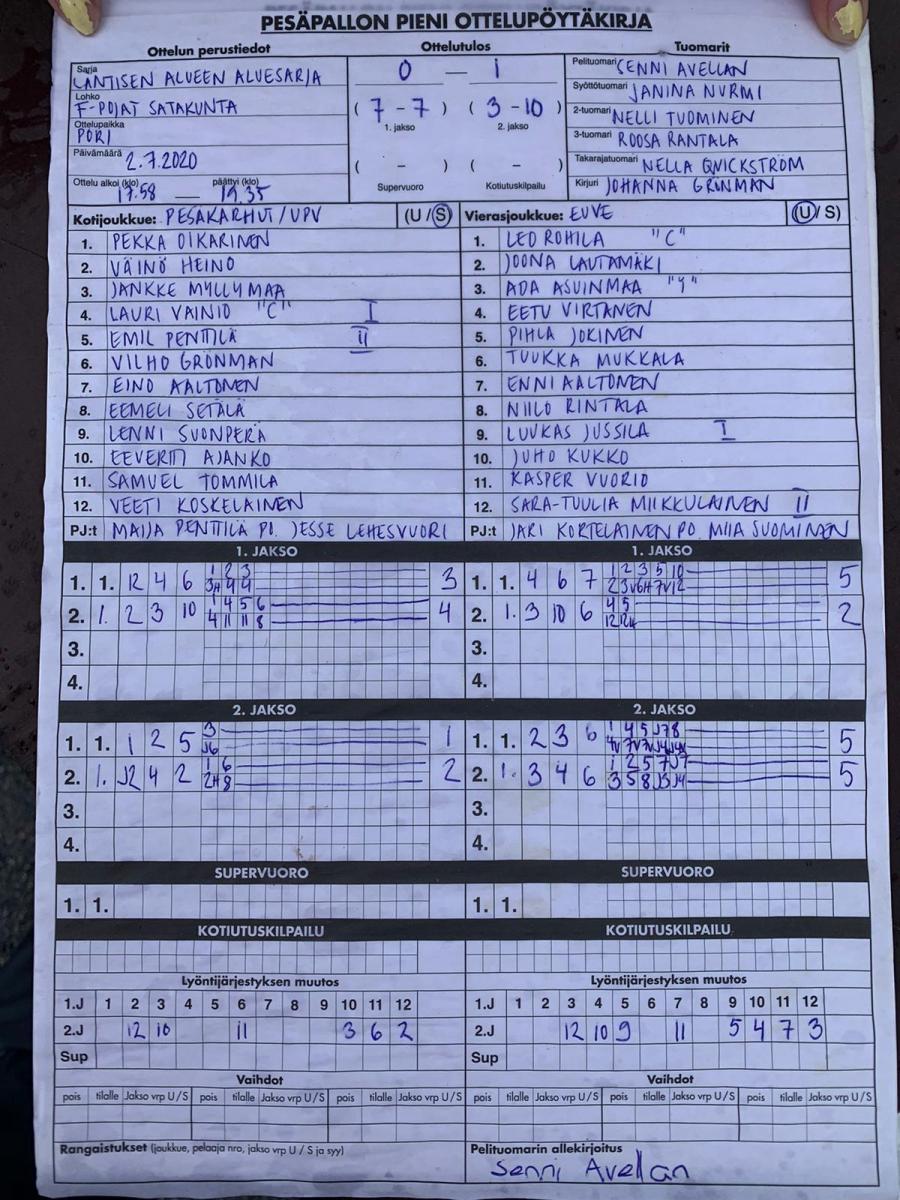 PESÄPALLON PIENI OTTELUPÖYTÄKIRJA
Ottelun perustiedot Ottelutulos Tuomarit
Sarja LÄNTISEN ALUEEN ALUESARJA
Lohko F-POJAT SATAKUNTA
Ottelupaikka PORI
Päivämäärä 2.7.2020
Ottelu alkoi (klo) 17.58 — päättyi (klo) 19.35
0 — 1
( 7 - 7 ) ( 3 - 10 )
1. jakso 2. jakso
( - ) ( - )
Supervuoro Kotiutuskilpailu
Pelituomari SENNI AVELLAN
Syöttötuomari JANINA NURMI
2-tuomari NELLI TUOMINEN
3-tuomari ROOSA RANTALA
Takarajatuomari NELLA QVICKSTRÖM
Kirjuri JOHANNA GRÖNMAN
Kotijoukkue: PESÄKARHUT/UPV (U / S)
1. PEKKA OIKARINEN
2. VÄINÖ HEINO
3. JANKKE MYLLYMAA
4. LAURI VAINIO "C" I
5. EMIL PENTTILÄ II
6. VILHO GRÖNMAN
7. EINO AALTONEN
8. EEMELI SETÄLÄ
9. LENNI SUONPERÄ
10. EEVERTTI AJANKO
11. SAMUEL TOMMILA
12. VEETI KOSKELAINEN
PJ:t MAIJA PENTTILÄ PJ. JESSE LEHESVUORI
Vierasjoukkue: EUVE (U / S)
1. LEO ROHILA "C"
2. JOONA LAUTAMÄKI
3. ADA ASUINMAA "Y"
4. EETU VIRTANEN
5. PIHLA JOKINEN
6. TUUKKA MUKKALA
7. ENNI AALTONEN
8. NIILO RINTALA
9. LUUKAS JUSSILA I
10. JUHO KUKKO
11. KASPER VUORIO
12. SARA-TUULIA MIIKKULAINEN II
PJ:t JARI KORTELAINEN PO. MIIA SUOMINEN
1. JAKSO 1. JAKSO
1. 1. 12 4 6 1 2 3 3
3H 4 4
2. 1. 2 3 10 1 4 5 6 4
4 11 11 8
3.
4.
1. 1. 4 6 7 1 2 3 5 10 5
2 3V 6H 7V 12
2. 1. 3 10 6 4 5 2
3.
4.
2. JAKSO 2. JAKSO
1. 1. 1 2 5 3 1
J6
2. 1. J2 4 2 1 6 2
2H 8
3.
4.
1. 1. 2 3 6 1 4 5 J7 8 5
2. 1. 3 4 6 1 2 5 7 J7 5
3 5 8 J3 J4
3.
4.
SUPERVUORO SUPERVUORO
1. 1. 1. 1.
KOTIUTUSKILPAILU KOTIUTUSKILPAILU
Lyöntijärjestyksen muutos Lyöntijärjestyksen muutos
1.J 1 2 3 4 5 6 7 8 9 10 11 12 1.J 1 2 3 4 5 6 7 8 9 10 11 12
2.J 12 10 11 3 6 2 2.J 12 10 9 11 5 4 7 3
Sup Sup
Vaihdot Vaihdot
pois tilalle Jakso vrp U / S pois tilalle Jakso vrp U / S pois tilalle Jakso vrp U / S pois tilalle Jakso vrp U / S pois tilalle Jakso vrp U / S pois tilalle Jakso vrp U / S
Rangaistukset (joukkue, pelaaja nro, jakso vrp U / S ja syy) Pelituomarin allekirjoitus
Senni Avellan